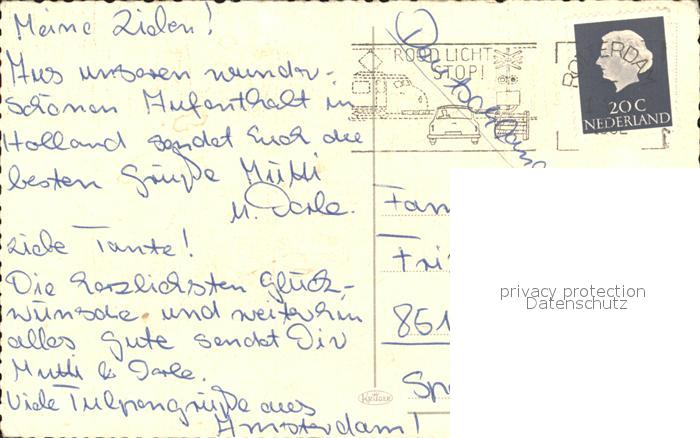 Meine Lieben!
Aus unseren wunder-
schönen Aufenthalt in
Holland sendet Euch die
besten Grüße Mutti
u.
Liebe Tante!
Die herzlichsten Glück-
wünsche und weiterhin
alles Gute sendet Dir
Mutti &
Viele Tulpengrüße aus
Amsterdam!
ROOD LICHT
STOP!
ROTTERDAM
20 C
NEDERLAND
Fam
Fri
851
privacy protection
Datenschutz